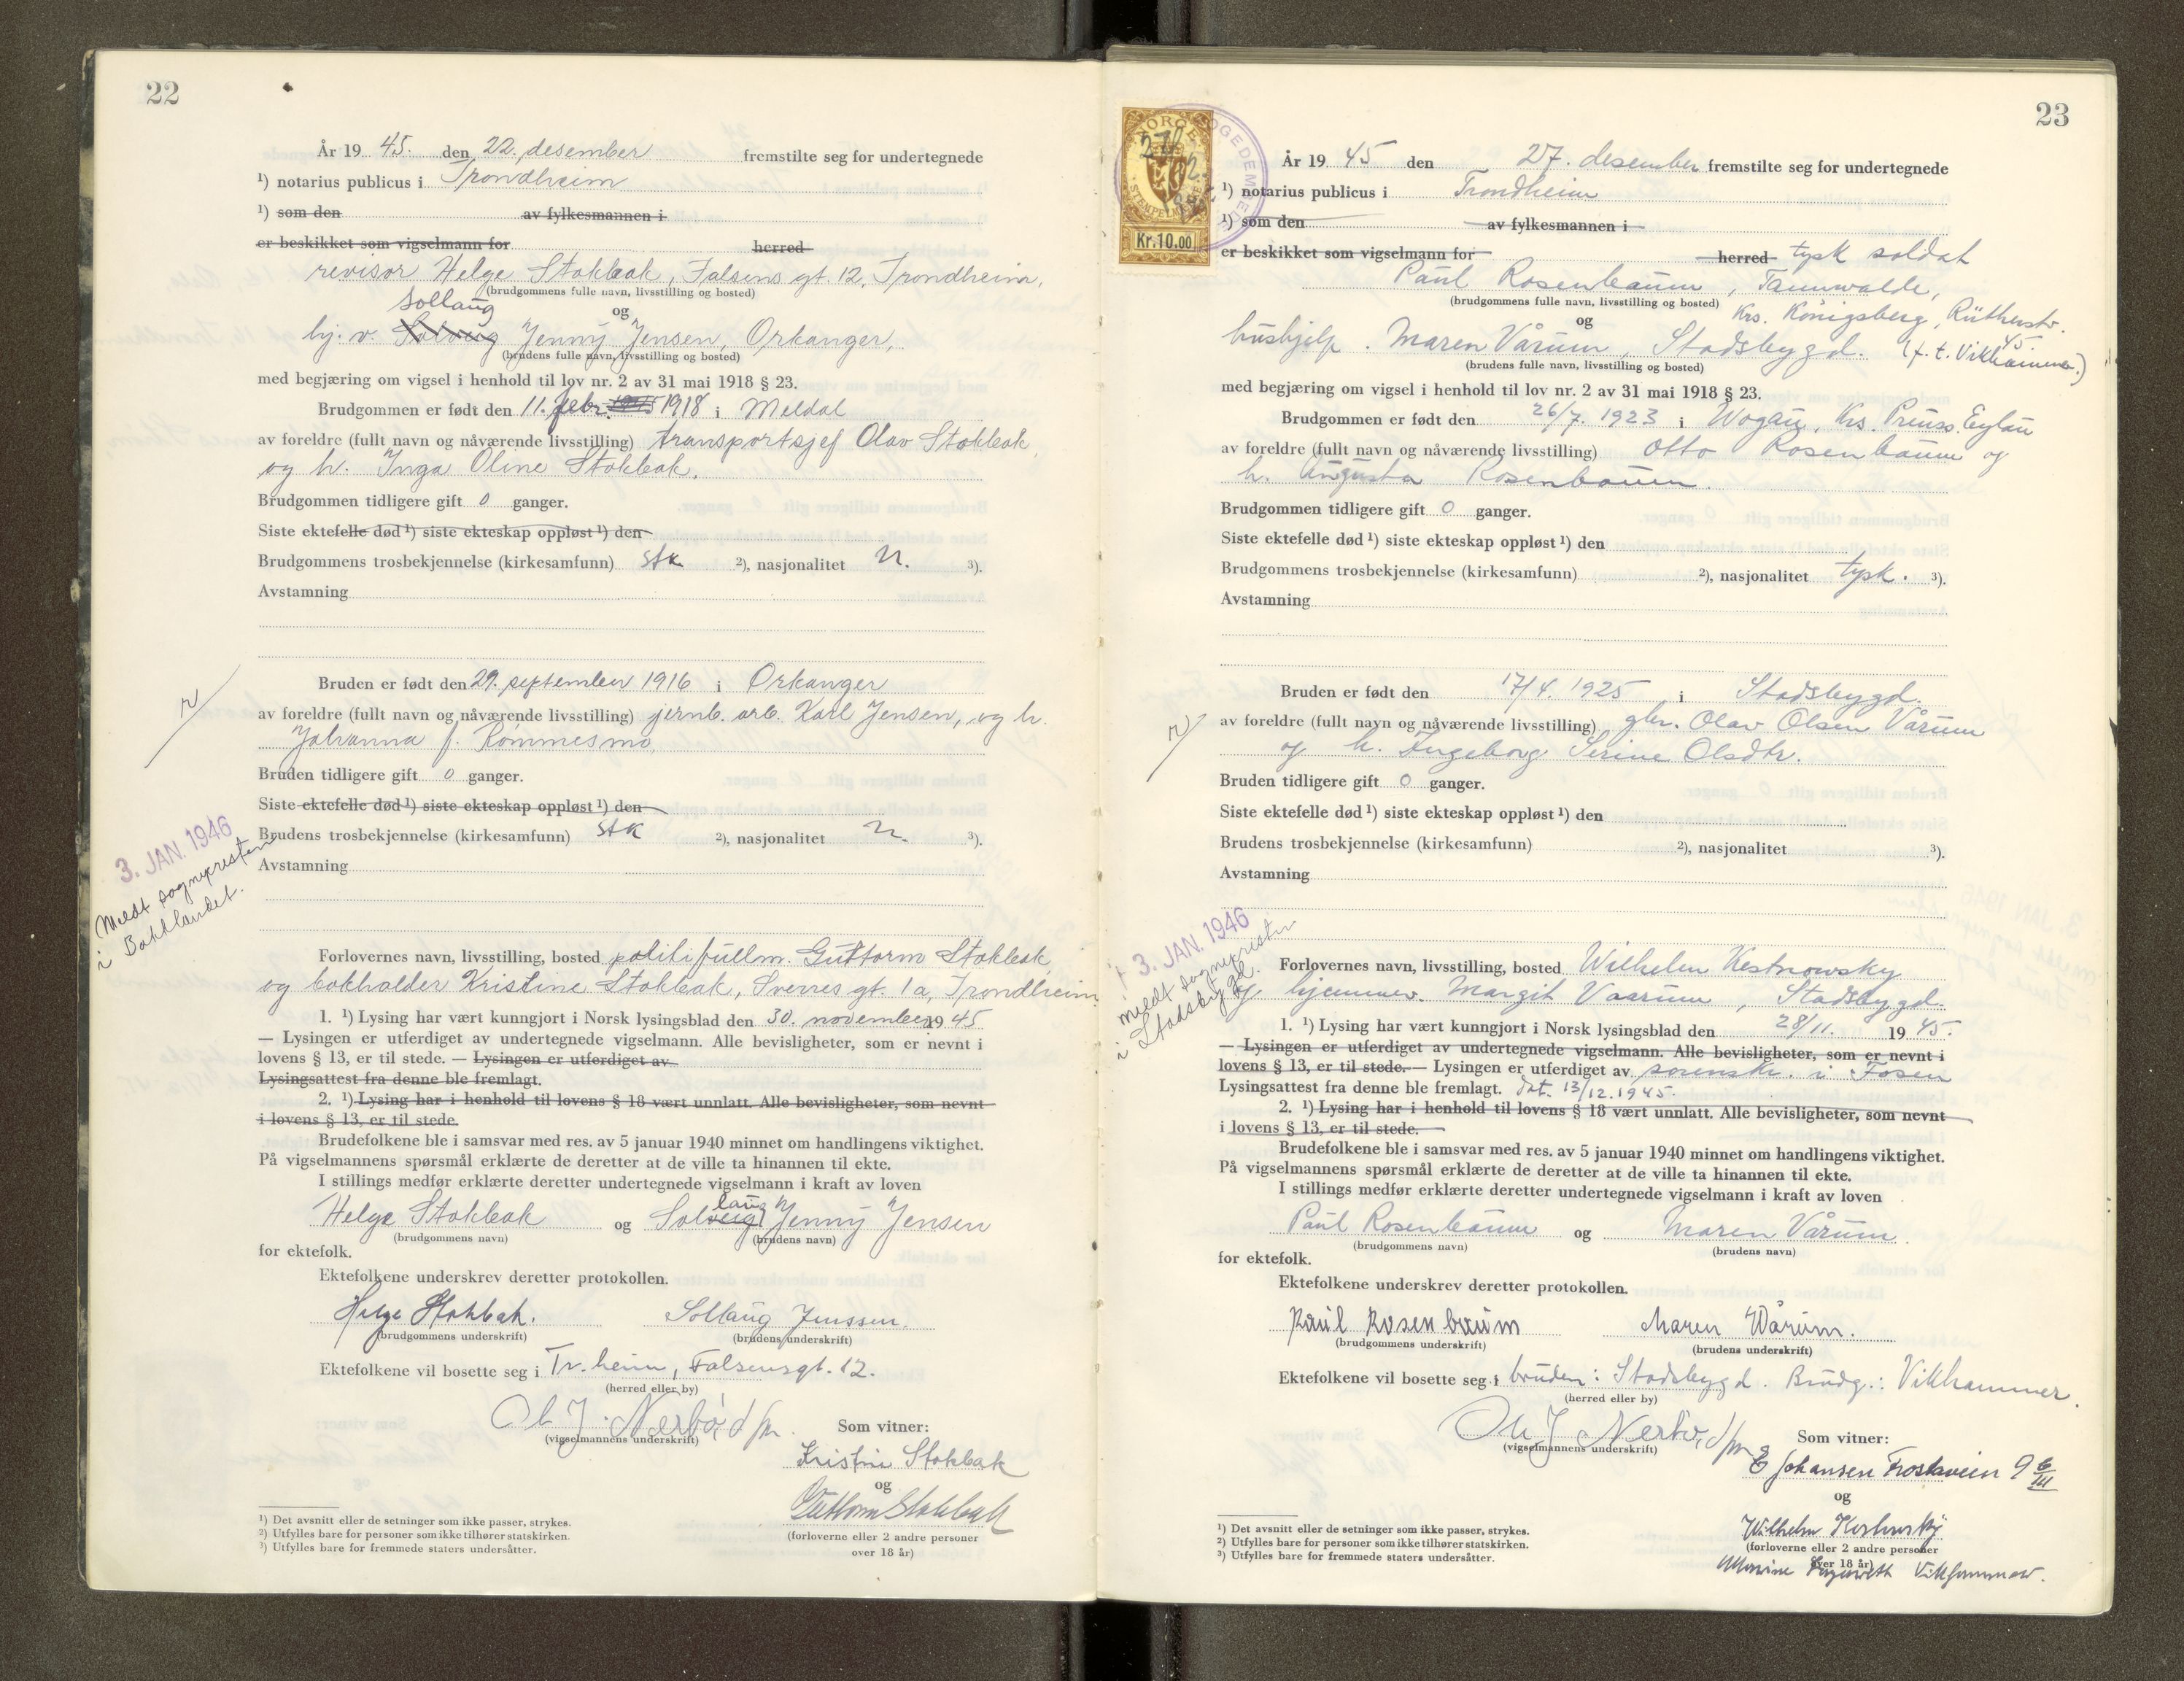 22
År 19 45. den 22. desember fremstilte seg for undertegnede
¹) notarius publicus i Trondheim
¹) som den av fylkesmannen i
er beskikket som vigselmann for herred
revisor Helge Stokbak, Falsens gt. 12, Trondheim,
(brudgommens fulle navn, livsstilling og bosted)
Sollaug
og
hj. v. Solveig Jenny Jensen, Orkanger,
(brudens fulle navn, livsstilling og bosted)
med begjæring om vigsel i henhold til lov nr. 2 av 31 mai 1918 § 23.
Brudgommen er født den 11. febr. 1945 1918 i Meldal
av foreldre (fullt navn og nåværende livsstilling) transportsjef Olav Stokbak,
og h. Inga Oline Stokbak.
Brudgommen tidligere gift 0 ganger.
Siste ektefelle død ¹) siste ekteskap oppløst ¹) den
Brudgommens trosbekjennelse (kirkesamfunn) stk ²), nasjonalitet n. ³).
Avstamning
Bruden er født den 29. september 1916 i Orkanger
av foreldre (fullt navn og nåværende livsstilling) jernb. arb. Karl Jensen, og h.
Johanna f. Rommesmo
Bruden tidligere gift 0 ganger.
Siste ektefelle død ¹) siste ekteskap oppløst ¹) den
Brudens trosbekjennelse (kirkesamfunn) stk ²), nasjonalitet n. ³).
Avstamning
3. JAN. 1946
Meldt sognepresten
i Bakklandet.
Forlovernes navn, livsstilling, bosted politifullm. Guttorm Stokbak
og bokholder Kristine Stokbak, Sverres gt. 1a, Trondheim
1. ¹) Lysing har vært kunngjort i Norsk lysingsblad den 30. november 1945
— Lysingen er utferdiget av undertegnede vigselmann. Alle bevisligheter, som er nevnt i
lovens § 13, er til stede. — Lysingen er utferdiget av
Lysingsattest fra denne ble fremlagt.
2. ¹) Lysing har i henhold til lovens § 18 vært unnlatt. Alle bevisligheter, som nevnt
i lovens § 13, er til stede.
Brudefolkene ble i samsvar med res. av 5 januar 1940 minnet om handlingens viktighet.
På vigselmannens spørsmål erklærte de deretter at de ville ta hinannen til ekte.
I stillings medfør erklærte deretter undertegnede vigselmann i kraft av loven
laug
Helge Stokbak og Solveig Jenny Jensen
(brudgommens navn) (brudens navn)
for ektefolk.
Ektefolkene underskrev deretter protokollen.
Helge Stokbak. Sollaug Jenssen.
(brudgommens underskrift) (brudens underskrift)
Ektefolkene vil bosette seg i Tr.heim, Falsensgt. 12.
(herred eller by)
Ole J. Nerbø, d/m.
(vigselmannens underskrift)
Som vitner:
Kristine Stokbak
og
Guttorm Stokbak
(forloverne eller 2 andre personer
over 18 år)
¹) Det avsnitt eller de setninger som ikke passer, strykes.
²) Utfylles bare for personer som ikke tilhører statskirken.
³) Utfylles bare for fremmede staters undersåtter.
23
NORGE
STEMPELMERKE
Kr. 10.00
År 19 45 den 27. desember fremstilte seg for undertegnede
¹) notarius publicus i Trondheim
¹) som den av fylkesmannen i
er beskikket som vigselmann for herred tysk soldat
Paul Rosenbaum, Tannwalde,
(brudgommens fulle navn, livsstilling og bosted) Krs. Königsberg, Rütherstr.
og 45
hushjelp. Maren Vårum, Stadsbygd. (f. t. Vikhammer.)
(brudens fulle navn, livsstilling og bosted)
med begjæring om vigsel i henhold til lov nr. 2 av 31 mai 1918 § 23.
Brudgommen er født den 26/7. 1923 i Wogau, Krs. Preuss. Eylau
av foreldre (fullt navn og nåværende livsstilling) Otto Rosenbaum og
h. Augusta Rosenbaum.
Brudgommen tidligere gift 0 ganger.
Siste ektefelle død ¹) siste ekteskap oppløst ¹) den
Brudgommens trosbekjennelse (kirkesamfunn) ²), nasjonalitet tysk. ³).
Avstamning
Bruden er født den 17/4. 1925 i Stadsbygd.
av foreldre (fullt navn og nåværende livsstilling) gbr. Olav Olsen Vårum
og h. Ingeborg Serine Olsdtr.
Bruden tidligere gift 0 ganger.
Siste ektefelle død ¹) siste ekteskap oppløst ¹) den
Brudens trosbekjennelse (kirkesamfunn) ²), nasjonalitet ³).
Avstamning
3. JAN. 1946
meldt sognepresten
i Stadsbygd.
Forlovernes navn, livsstilling, bosted Wilhelm Kestnowsky
og hjemmev. Margit Vaarum, Stadsbygd.
1. ¹) Lysing har vært kunngjort i Norsk lysingsblad den 28/11. 19 45.
— Lysingen er utferdiget av undertegnede vigselmann. Alle bevisligheter, som er nevnt i
lovens § 13, er til stede. — Lysingen er utferdiget av sorenskr. i Fosen
Lysingsattest fra denne ble fremlagt. dat. 13/12.1945.
2. ¹) Lysing har i henhold til lovens § 18 vært unnlatt. Alle bevisligheter, som nevnt
i lovens § 13, er til stede.
Brudefolkene ble i samsvar med res. av 5 januar 1940 minnet om handlingens viktighet.
På vigselmannens spørsmål erklærte de deretter at de ville ta hinannen til ekte.
I stillings medfør erklærte deretter undertegnede vigselmann i kraft av loven
Paul Rosenbaum og Maren Vårum.
(brudgommens navn) (brudens navn)
for ektefolk.
Ektefolkene underskrev deretter protokollen.
Paul Rosenbaum Maren Wårum.
(brudgommens underskrift) (brudens underskrift)
Ektefolkene vil bosette seg i bruden: Stadsbygd. Brudg.: Vikhammer.
(herred eller by)
Ole J Nerbø, d/m
(vigselmannens underskrift)
Som vitner:
E Johansen Frostaveien 9
og
Wilhelm
(forloverne eller 2 andre personer
over 18 år)
Vikhammer.
¹) Det avsnitt eller de setninger som ikke passer, strykes.
²) Utfylles bare for personer som ikke tilhører statskirken.
³) Utfylles bare for fremmede staters undersåtter.